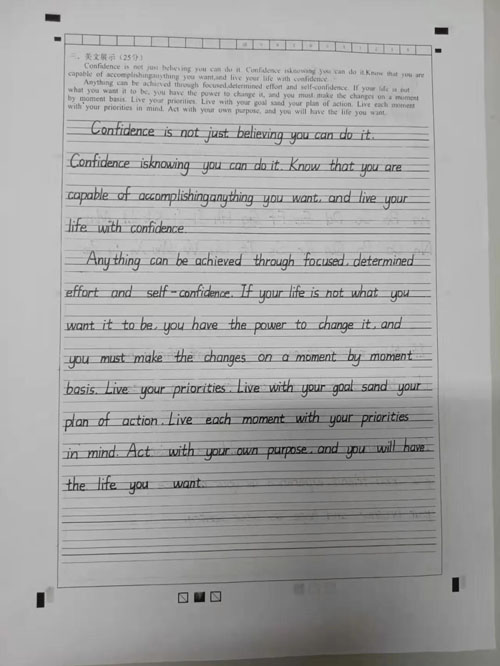 三、英文展示（25分）
Confidence is not just believing you can do it. Confidence isknowing you can do it.Know that you are
capable of accomplishinganything you want,and live your life with confidence.
Anything can be achieved through focused,determined effort and self-confidence. If your life is not
what you want it to be, you have the power to change it, and you must make the changes on a moment
by moment basis. Live your priorities. Live with your goal sand your plan of action. Live each moment
with your priorities in mind. Act with your own purpose, and you will have the life you want.
Confidence is not just believing you can do it.
Confidence isknowing you can do it. Know that you are
capable of accomplishinganything you want, and live your
life with confidence.
Anything can be achieved through focused, determined
effort and self-confidence. If your life is not what you
want it to be, you have the power to change it, and
you must make the changes on a moment by moment
basis. Live your priorities. Live with your goal sand your
plan of action. Live each moment with your priorities
in mind. Act with your own purpose, and you will have
the life you want.